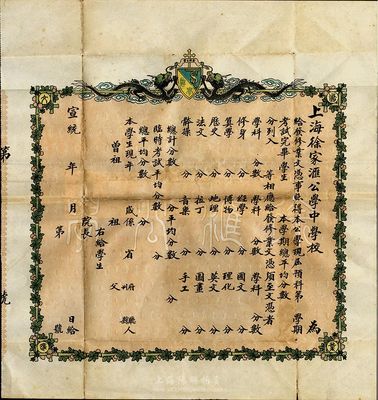 上海徐家滙公學中學校 為
給發修業文憑事照得本公學現屆預科第 學期
考試完畢學生 本學期總平均分數
分列入 等相應給發修業文憑須至文憑者
學科 分數 學科 分數 學科 分數
修身 分 經學 分 國文 分
算學 分 博物 分 理化 分
歷史 分 地理 分 英文 分
法文 分 拉丁 分 圖畫 分
分 音樂 分 手工 分
總計分數 分 平均分數 分
臨時考試平均分數 分
總平均分數 分
本學生現年 歲係 省 府州 縣人
曾祖 祖 父
右給學生
院長
宣統 年 月 日給
第 號
第 號